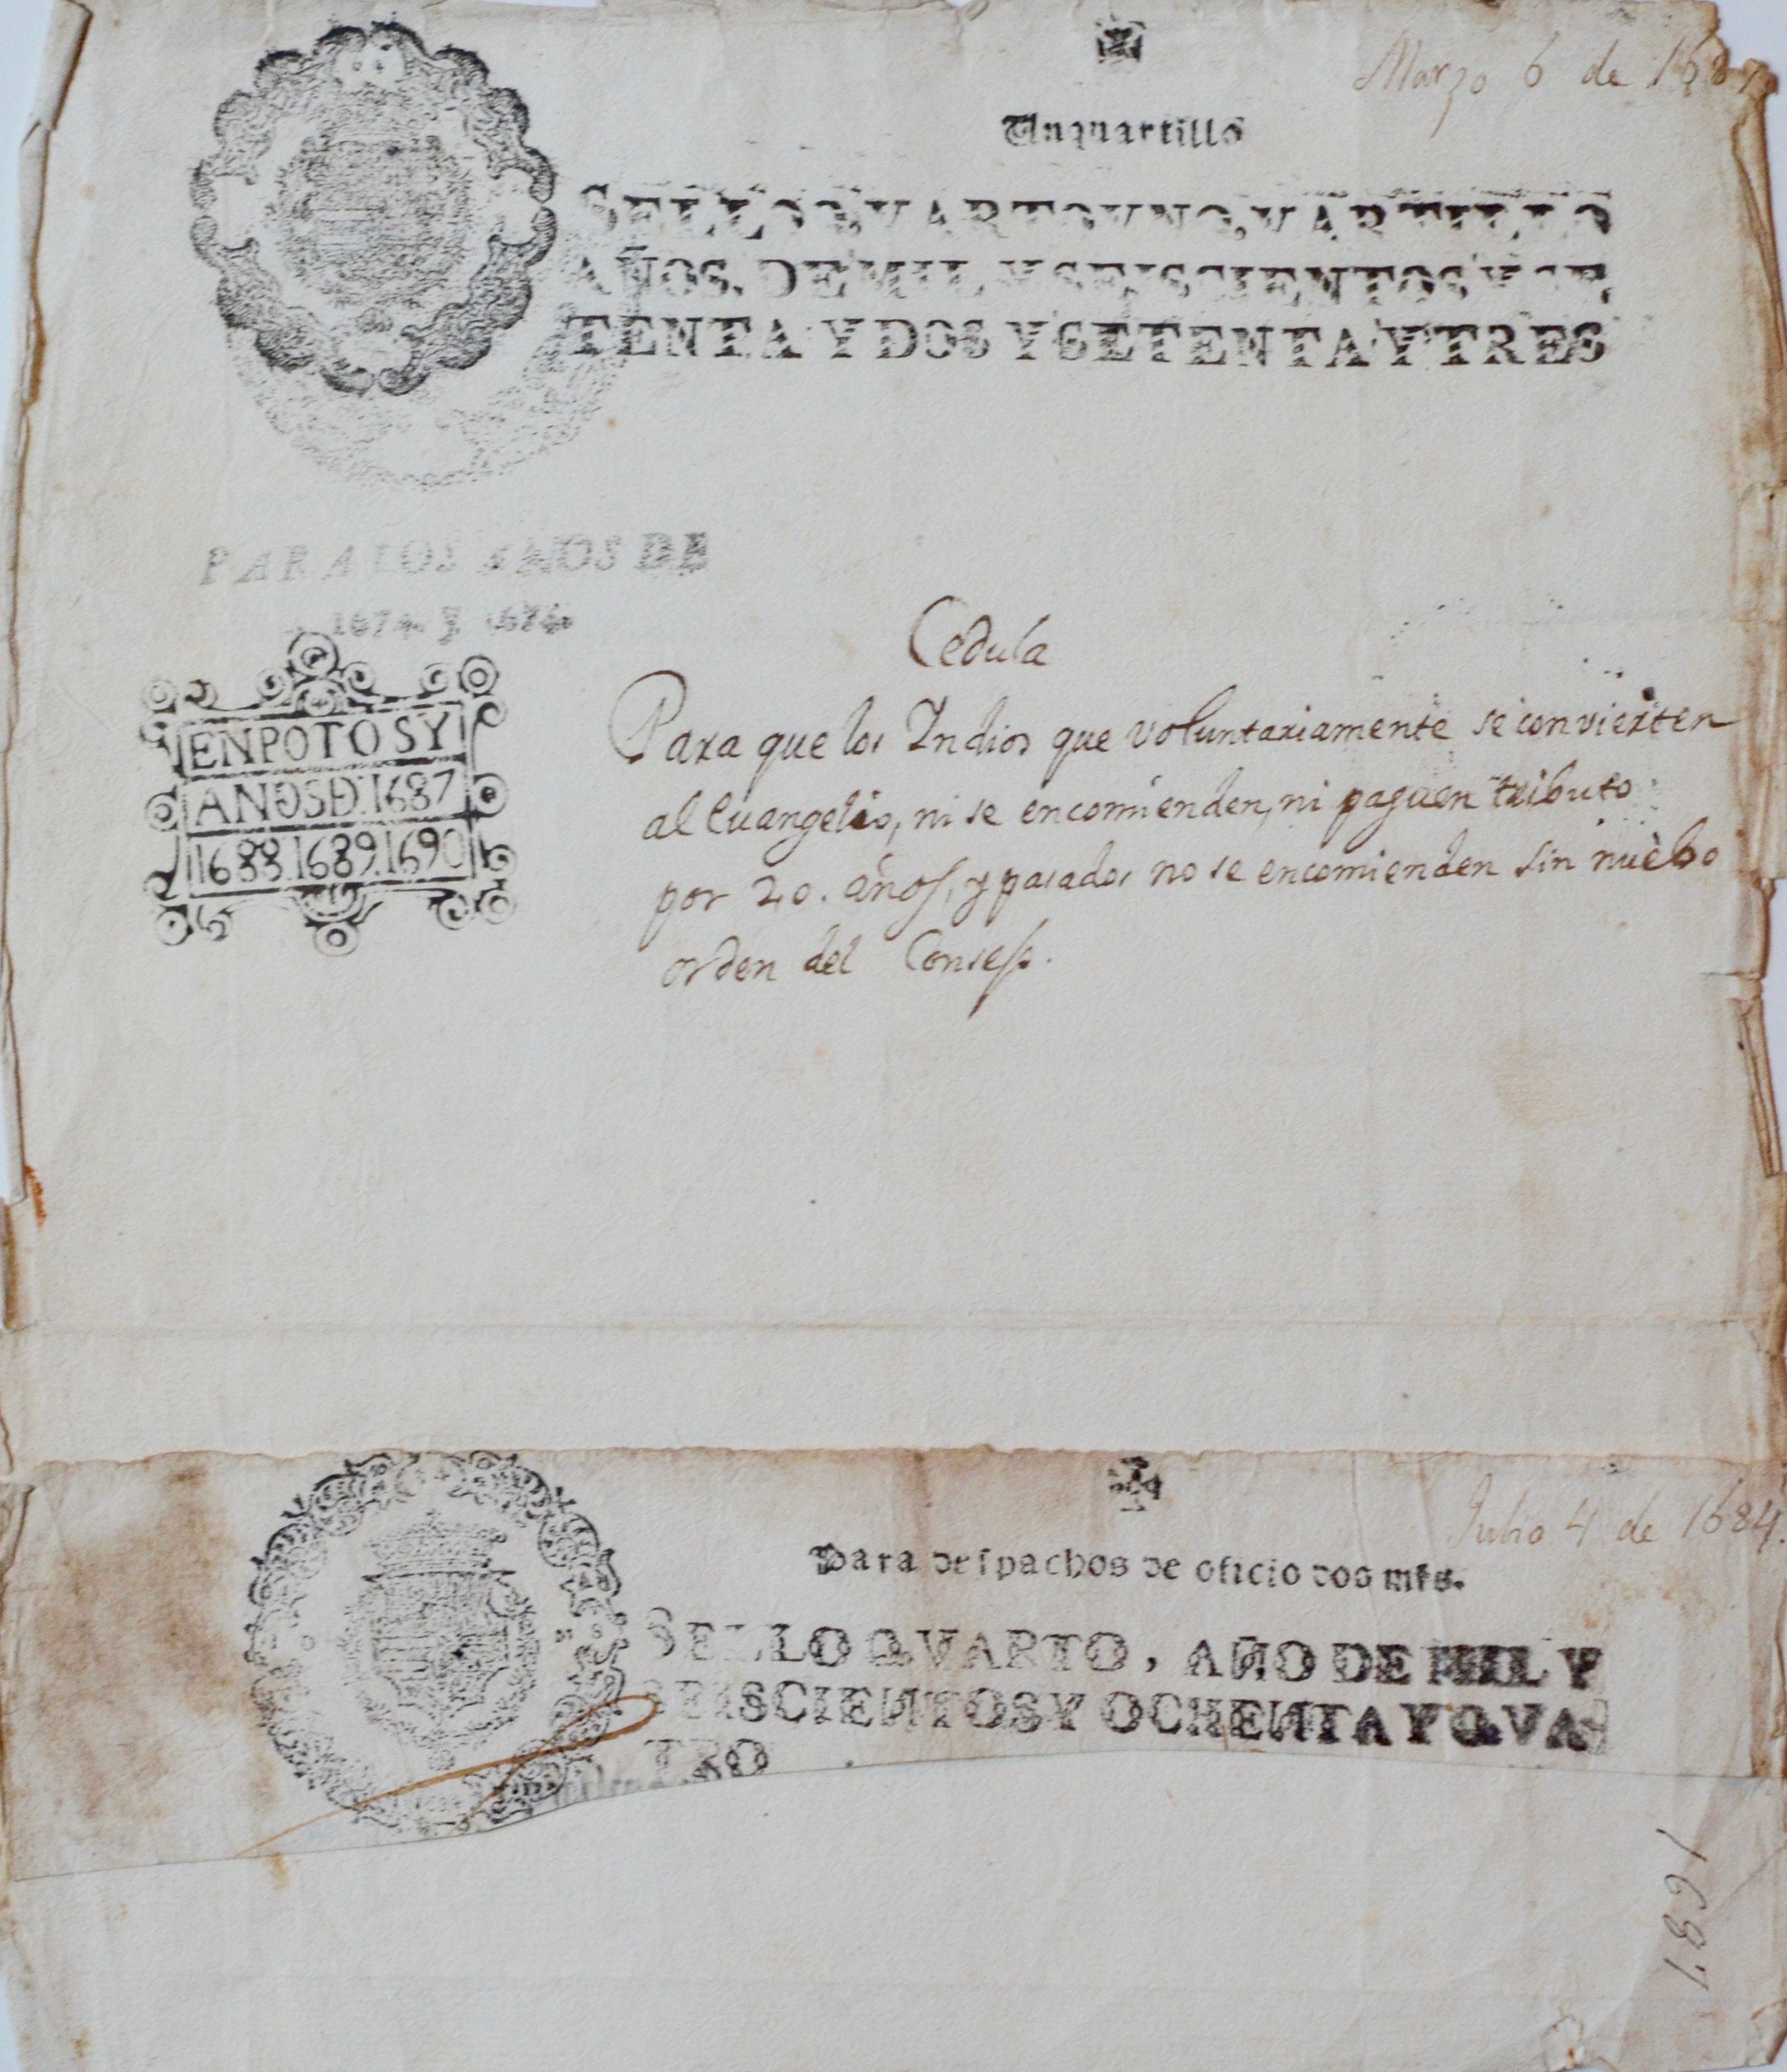 Marzo 6 de 168
Vn quartillo
SELLO QVARTO VN QVARTILLO
AÑOS, DE MIL Y SEISCIENTOS, Y SE
TENTA Y DOS Y SETENTA Y TRES
PARA LOS AÑOS DE
1674. y
EN POTOSY
AÑOSD.1687
1688.1689.1690
Cedula
Para que los Indios que voluntariamente se convierten
al Evangelio, ni se encomienden, ni paguen tributo
por 20. años, y pasados no se encomienden sin nuebo
orden del Consejo.
Julio 4 de 1684.
Para despachos de oficio dos mrs.
SELLO QVARTO, AÑO DE MIL Y
SEISCIENTOS Y OCHENTA Y QVA
TRO
1687